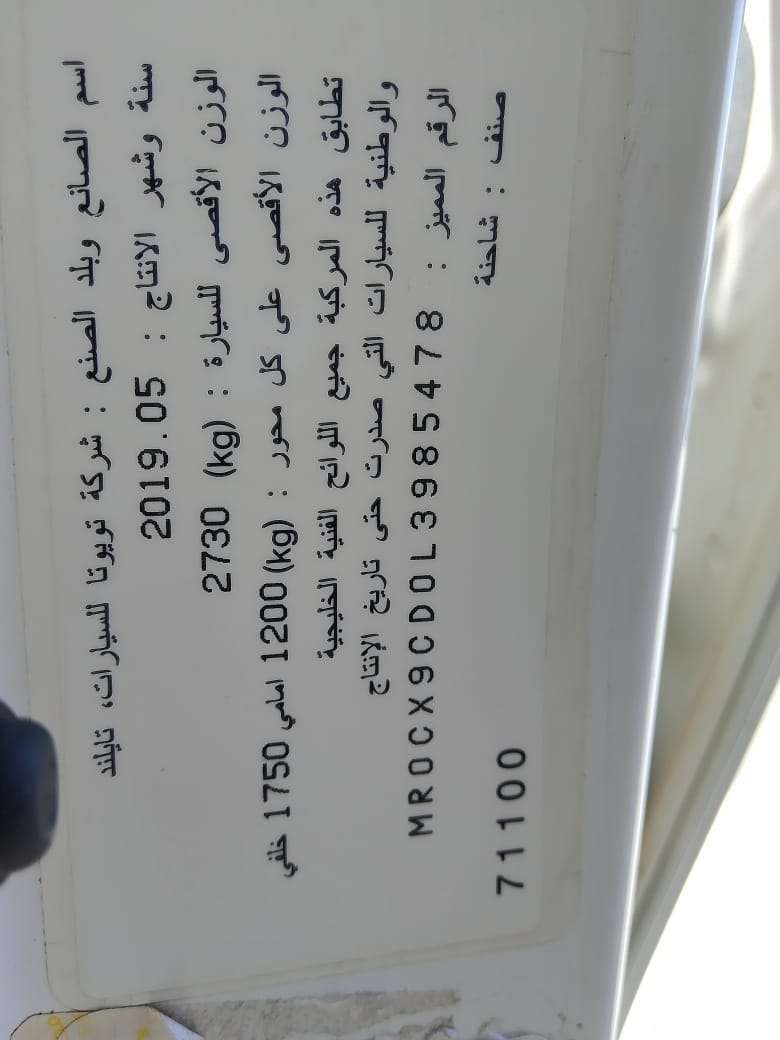 اسم الصانع وبلد الصنع : شركة تويوتا للسيارات، تايلند
سنة وشهر الانتاج : 2019.05
الوزن الأقصى للسيارة : (kg) 2730
الوزن الأقصى على كل محور : (kg) 1200 امامي 1750 خلفي
تطابق هذه المركبة جميع اللوائح الفنية الخليجية
والوطنية للسيارات التي صدرت حتى تاريخ الإنتاج
الرقم المميز : MR0CX9CD0L3985478
صنف : شاحنة
71100